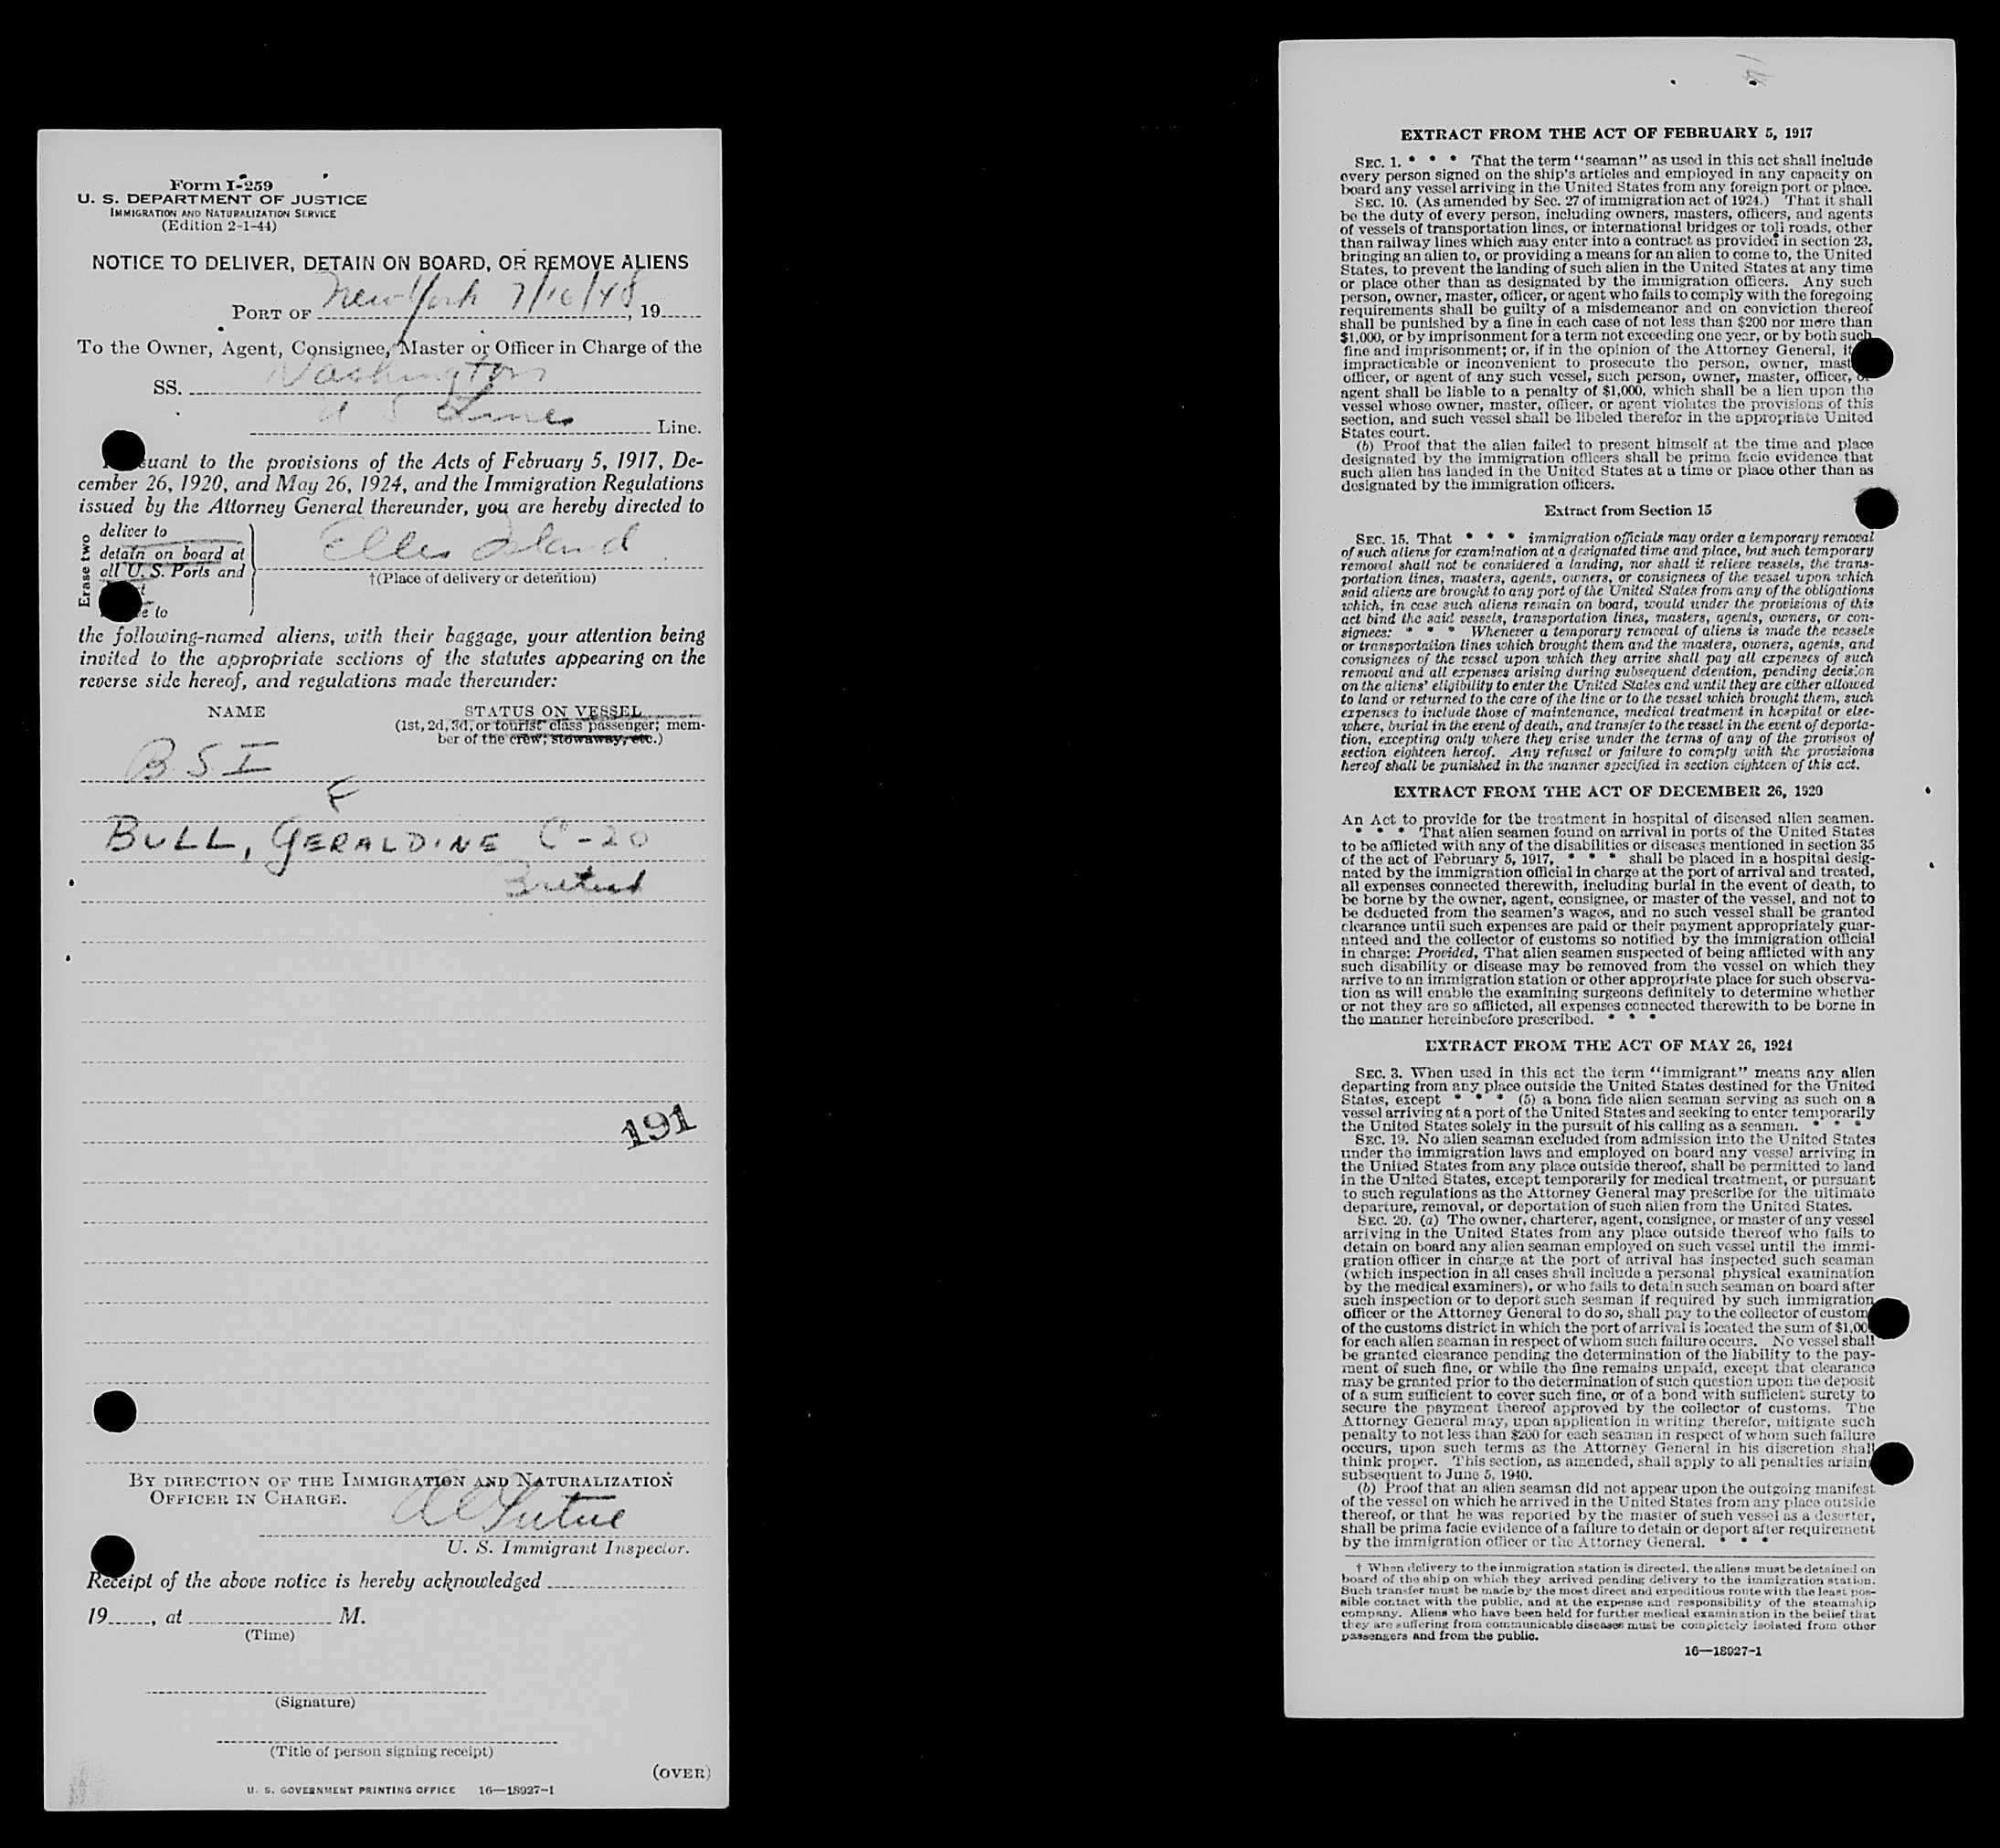 Form I-259
U. S. DEPARTMENT OF JUSTICE
IMMIGRATION AND NATURALIZATION SERVICE
(Edition 2-1-44)
NOTICE TO DELIVER, DETAIN ON BOARD, OR REMOVE ALIENS
PORT OF New York 7/16/48, 19
To the Owner, Agent, Consignee, Master or Officer in Charge of the
SS. Washington
U S Lines Line.
suant to the provisions of the Acts of February 5, 1917, De-
cember 26, 1920, and May 26, 1924, and the Immigration Regulations
issued by the Attorney General thereunder, you are hereby directed to
Erase two
deliver to
detain on board at
all U. S. Ports and
e to
Ellis Island
†(Place of delivery or detention)
the following-named aliens, with their baggage, your attention being
invited to the appropriate sections of the statutes appearing on the
reverse side hereof, and regulations made thereunder:
NAME STATUS ON VESSEL
(1st, 2d, 3d, or tourist class passenger; mem-
ber of the crew; stowaway, etc.)
B S I
F
BULL, GERALDINE C-20
191
BY DIRECTION OF THE IMMIGRATION AND NATURALIZATION
OFFICER IN CHARGE.
U. S. Immigrant Inspector.
Receipt of the above notice is hereby acknowledged
19, at M.
(Time)
(Signature)
(Title of person signing receipt)
(OVER)
U. S. GOVERNMENT PRINTING OFFICE 16—18927-1
EXTRACT FROM THE ACT OF FEBRUARY 5, 1917
SEC. 1. * * * That the term "seaman" as used in this act shall include
every person signed on the ship's articles and employed in any capacity on
board any vessel arriving in the United States from any foreign port or place.
SEC. 10. (As amended by Sec. 27 of immigration act of 1924.) That it shall
be the duty of every person, including owners, masters, officers, and agents
of vessels of transportation lines, or international bridges or toll roads, other
than railway lines which may enter into a contract as provided in section 23,
bringing an alien to, or providing a means for an alien to come to, the United
States, to prevent the landing of such alien in the United States at any time
or place other than as designated by the immigration officers. Any such
person, owner, master, officer, or agent who fails to comply with the foregoing
requirements shall be guilty of a misdemeanor and on conviction thereof
shall be punished by a fine in each case of not less than $200 nor more than
$1,000, or by imprisonment for a term not exceeding one year, or by both such
fine and imprisonment; or, if in the opinion of the Attorney General, it
impracticable or inconvenient to prosecute the person, owner, mast
officer, or agent of any such vessel, such person, owner, master, officer, or
agent shall be liable to a penalty of $1,000, which shall be a lien upon the
vessel whose owner, master, officer, or agent violates the provisions of this
section, and such vessel shall be libeled therefor in the appropriate United
States court.
(b) Proof that the alien failed to present himself at the time and place
designated by the immigration officers shall be prima facie evidence that
such alien has landed in the United States at a time or place other than as
designated by the immigration officers.
Extract from Section 15
SEC. 15. That * * * immigration officials may order a temporary removal
of such aliens for examination at a designated time and place, but such temporary
removal shall not be considered a landing, nor shall it relieve vessels, the trans-
portation lines, masters, agents, owners, or consignees of the vessel upon which
said aliens are brought to any port of the United States from any of the obligations
which, in case such aliens remain on board, would under the provisions of this
act bind the said vessels, transportation lines, masters, agents, owners, or con-
signees: * * * Whenever a temporary removal of aliens is made the vessels
or transportation lines which brought them and the masters, owners, agents, and
consignees of the vessel upon which they arrive shall pay all expenses of such
removal and all expenses arising during subsequent detention, pending decision
on the aliens' eligibility to enter the United States and until they are either allowed
to land or returned to the care of the line or to the vessel which brought them, such
expenses to include those of maintenance, medical treatment in hospital or else-
where, burial in the event of death, and transfer to the vessel in the event of deporta-
tion, excepting only where they arise under the terms of any of the provisos of
section eighteen hereof. Any refusal or failure to comply with the provisions
hereof shall be punished in the manner specified in section eighteen of this act.
EXTRACT FROM THE ACT OF DECEMBER 26, 1920
An Act to provide for the treatment in hospital of diseased alien seamen.
* * * That alien seamen found on arrival in ports of the United States
to be afflicted with any of the disabilities or diseases mentioned in section 35
of the act of February 5, 1917, * * * shall be placed in a hospital desig-
nated by the immigration official in charge at the port of arrival and treated,
all expenses connected therewith, including burial in the event of death, to
be borne by the owner, agent, consignee, or master of the vessel, and not to
be deducted from the seamen's wages, and no such vessel shall be granted
clearance until such expenses are paid or their payment appropriately guar-
anteed and the collector of customs so notified by the immigration official
in charge: Provided, That alien seamen suspected of being afflicted with any
such disability or disease may be removed from the vessel on which they
arrive to an immigration station or other appropriate place for such observa-
tion as will enable the examining surgeons definitely to determine whether
or not they are so afflicted, all expenses connected therewith to be borne in
the manner hereinbefore prescribed. * * *
EXTRACT FROM THE ACT OF MAY 26, 1924
SEC. 3. When used in this act the term "immigrant" means any alien
departing from any place outside the United States destined for the United
States, except * * * (5) a bona fide alien seaman serving as such on a
vessel arriving at a port of the United States and seeking to enter temporarily
the United States solely in the pursuit of his calling as a seaman. * * *
SEC. 19. No alien seaman excluded from admission into the United States
under the immigration laws and employed on board any vessel arriving in
the United States from any place outside thereof, shall be permitted to land
in the United States, except temporarily for medical treatment, or pursuant
to such regulations as the Attorney General may prescribe for the ultimate
departure, removal, or deportation of such alien from the United States.
SEC. 20. (a) The owner, charterer, agent, consignee, or master of any vessel
arriving in the United States from any place outside thereof who fails to
detain on board any alien seaman employed on such vessel until the immi-
gration officer in charge at the port of arrival has inspected such seaman
(which inspection in all cases shall include a personal physical examination
by the medical examiners), or who fails to detain such seaman on board after
such inspection or to deport such seaman if required by such immigration
officer or the Attorney General to do so, shall pay to the collector of custom
of the customs district in which the port of arrival is located the sum of $1,00
for each alien seaman in respect of whom such failure occurs. No vessel shall
be granted clearance pending the determination of the liability to the pay-
ment of such fine, or while the fine remains unpaid, except that clearance
may be granted prior to the determination of such question upon the deposit
of a sum sufficient to cover such fine, or of a bond with sufficient surety to
secure the payment thereof approved by the collector of customs. The
Attorney General may, upon application in writing therefor, mitigate such
penalty to not less than $200 for each seaman in respect of whom such failure
occurs, upon such terms as the Attorney General in his discretion shall
think proper. This section, as amended, shall apply to all penalties arisin
subsequent to June 5, 1940.
(b) Proof that an alien seaman did not appear upon the outgoing manifest
of the vessel on which he arrived in the United States from any place outside
thereof, or that he was reported by the master of such vessel as a deserter,
shall be prima facie evidence of a failure to detain or deport after requirement
by the immigration officer or the Attorney General. * * *
† When delivery to the immigration station is directed, the aliens must be detained on
board of the ship on which they arrived pending delivery to the immigration station.
Such transfer must be made by the most direct and expeditious route with the least pos-
sible contact with the public, and at the expense and responsibility of the steamship
company. Aliens who have been held for further medical examination in the belief that
they are suffering from communicable diseases must be completely isolated from other
passengers and from the public.
16—18927-1